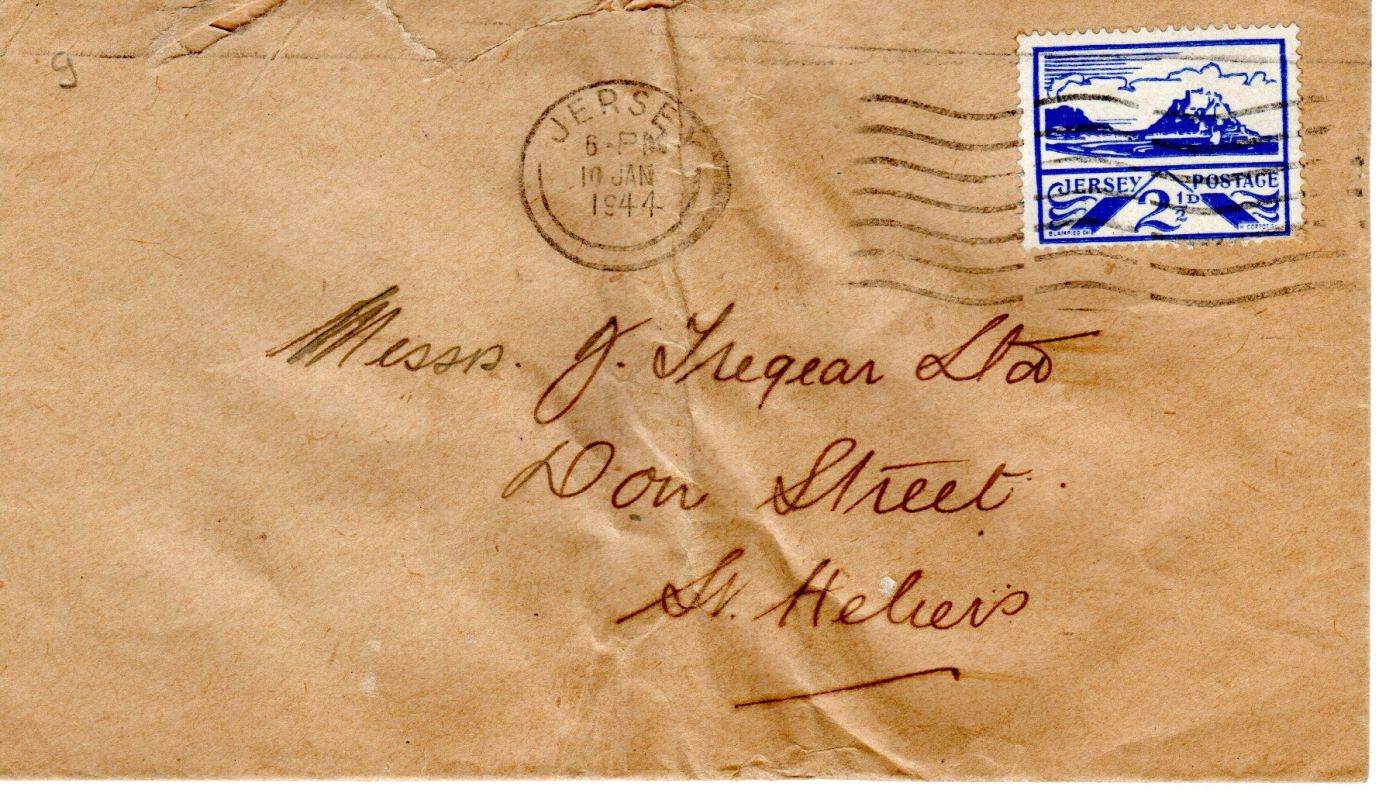 9
JERSEY
6-PM
10 JAN
1944
JERSEY POSTAGE
2½D
BLAMPIED
H. CORTOT
Messrs. J. Tregear Ltd
Don Street.
St. Heliers